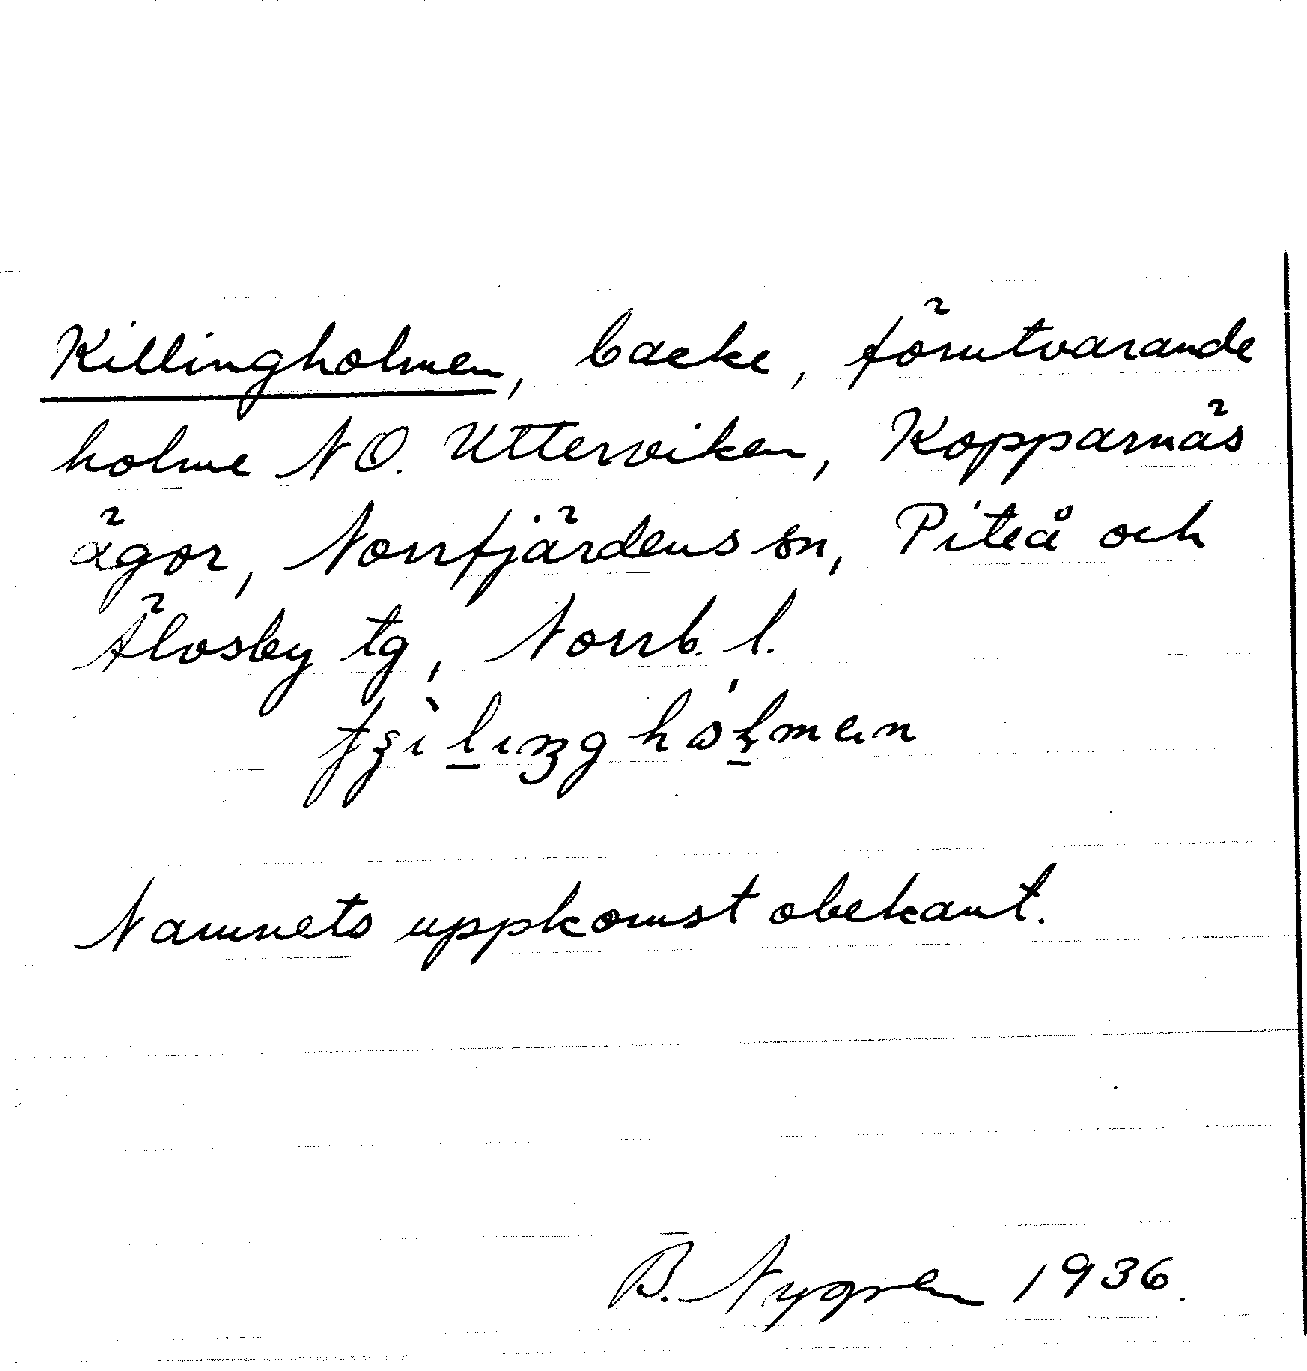 Killingholmen, backe, förutvarande
holme NO. Utterviken, Kopparnäs
ägor, Norrfjärdens sn, Piteå och
Älvsby tg, Norrb. l.
Namnets uppkomst obekant.
B. Nygren 1936.